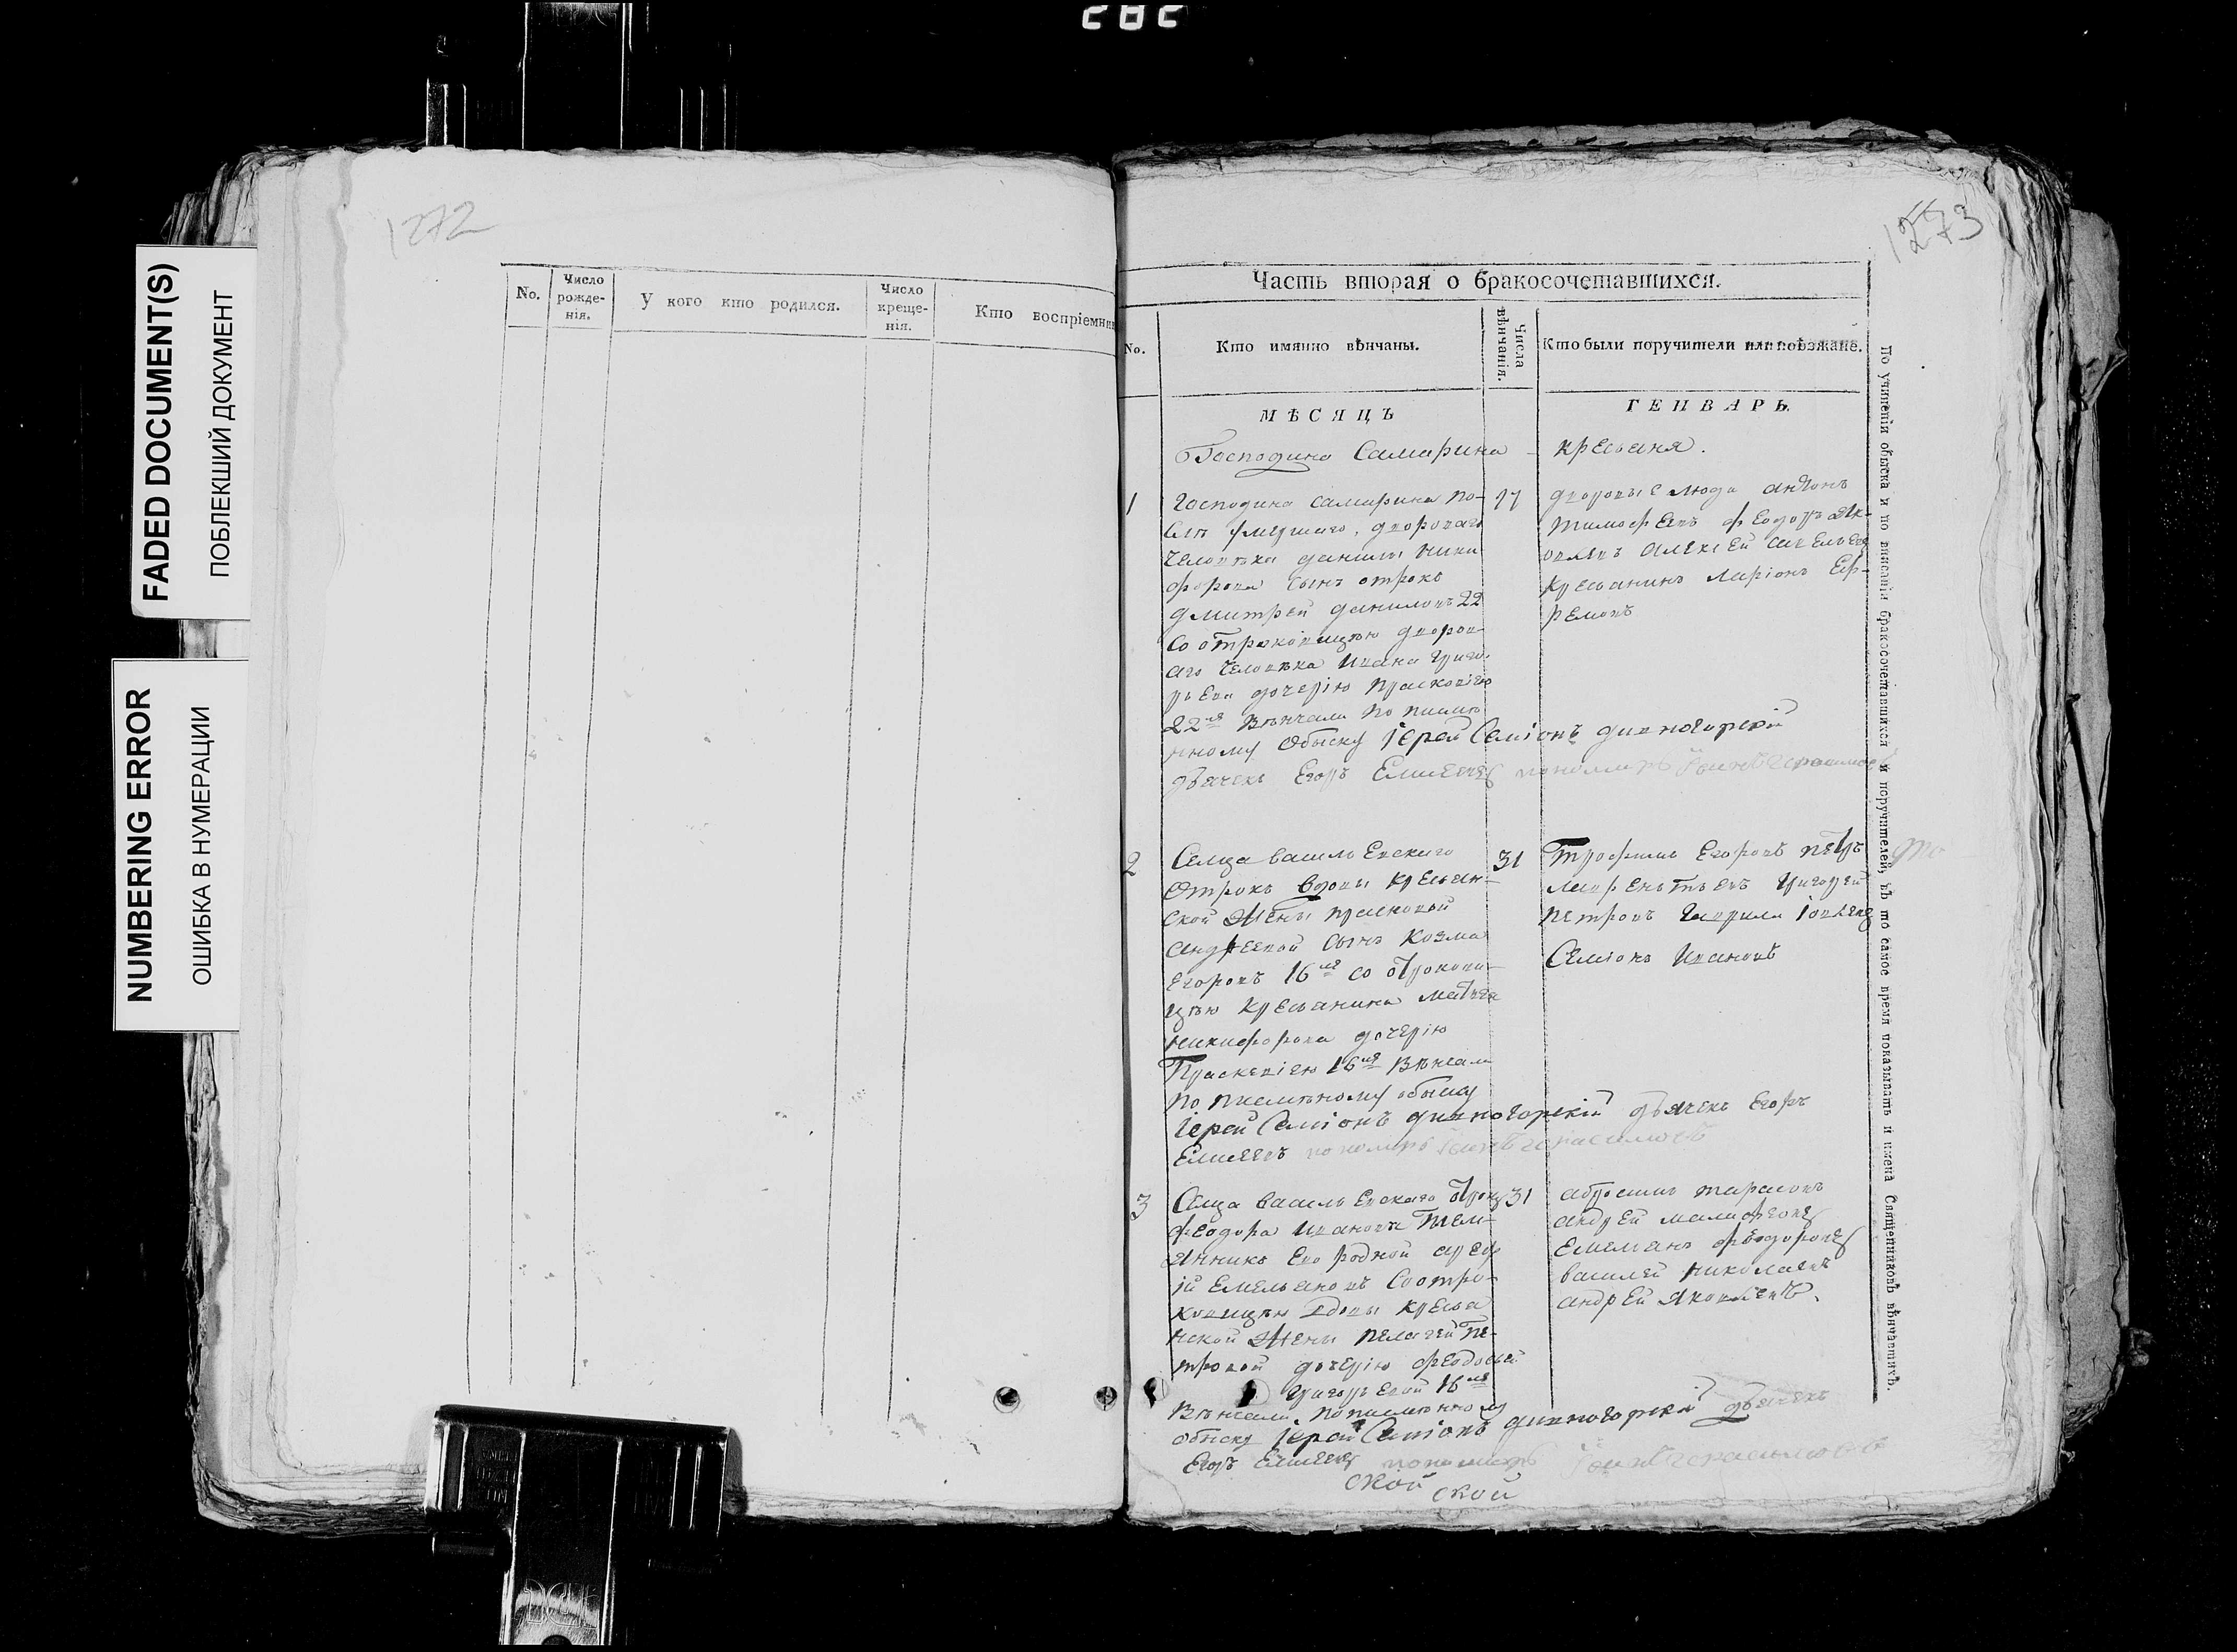 282
FADED DOCUMENT(S)
ПОБЛЕКШИЙ ДОКУМЕНТ
NUMBERING ERROR
ОШИБКА В НУМЕРАЦИИ
1272
No.
Число рожденія.
У кого кто родился.
Число крещенія.
Кто воспріемник
1273
Часть вторая о бракосочетавшихся.
No.
Кто имянно вѣнчаны.
Числа вѣнчанія.
Кто были поручители или поѣзжане.
МѢСЯЦЪ
ГЕНВАРЬ.
Господина Самарина кресьяня.
1
17
господина самарина по-
двороваго
человѣка данилы ники
форова сынъ отрокъ
дмитрей даниловъ 22
со отроковицѣю дворов
аго человѣка ивана григо
рьева дочерію праскові
22 лѣ вѣнчали по писмѣ
нному обыску іерей Семіонъ дивногорскій
дьячекъ Егоръ Елисеевъ пономарь
дворовые люди антонъ
тимофѣевъ феодоръ як-
овлевъ алексѣй савельев
кресьянинъ ларіонъ Еф-
ремовъ
2
31
Селца василь Евскаго
отрокъ вдовы кресьян-
ской жены
андреевой сынъ козма
Егоровъ 16 лѣ со отрокови-
цѣю кресьянина матвея
никифорова дочерію
Праскевіею 16 лѣ вѣнчали
по писмѣному обыску
іерей Семіонъ дивногорскій дьячекъ Егоръ
Елисеевъ пономарь герасимовъ
трофимъ Егоровъ петръ
лаврентьевъ григорей
петровъ гаврила іовлевъ
Семіонъ Ивановъ
3
31
Селца василь Евскаго отрокъ
феодора иванова плем-
янникъ Его родной
Емельяновъ со отро-
ковицѣю вдовы кресья
нской жены пелагеи пе-
тровой дочерію феодосьей
григорьевой 16 лѣ
вѣнчали по писмѣнному
обыску іерей Семіонъ дивногорскій дьячекъ
Егоръ Елисеевъ пономарь герасимовъ
абросимъ тарасовъ
андрей
Емельянъ феодоровъ
василей николаевъ
андрей яковлевъ.
ской
ской
По учиненіи обыска и по вписаніи бракосочетавшихся и поручителей, въ то самое время показывать и имена Священниковъ вѣнчавшихъ.